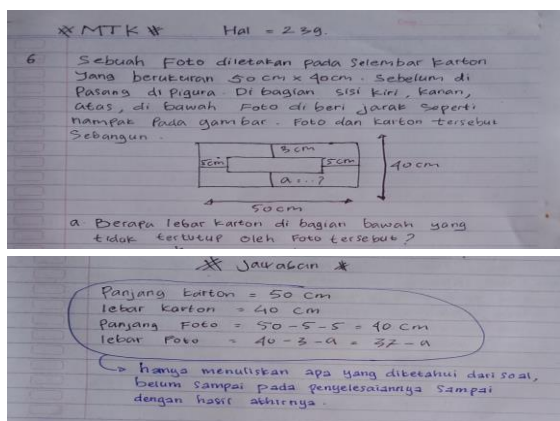 * MTK * Hal = 239.
6 Sebuah Foto diletakan pada selembar karton
yang berukuran 50 cm x 40 cm. Sebelum di
Pasang di Pigura. Di bagian sisi kiri, kanan,
atas, di bawah Foto di beri jarak seperti
nampak Pada gambar. Foto dan karton tersebut
Sebangun.
3 cm
5cm 5cm 40 cm
a...?
50 cm
a Berapa lebar karton di bagian bawah yang
tidak tertutup oleh Foto tersebut?
* Jawaban *
Panjang karton = 50 cm
lebar karton = 40 cm
Panjang Foto = 50 - 5 - 5 = 40 cm
lebar Foto = 40 - 3 - a = 37 - a
hanya menuliskan apa yang diketahui dari soal,
belum sampai pada penyelesaiannya sampai
dengan hasil akhirnya.